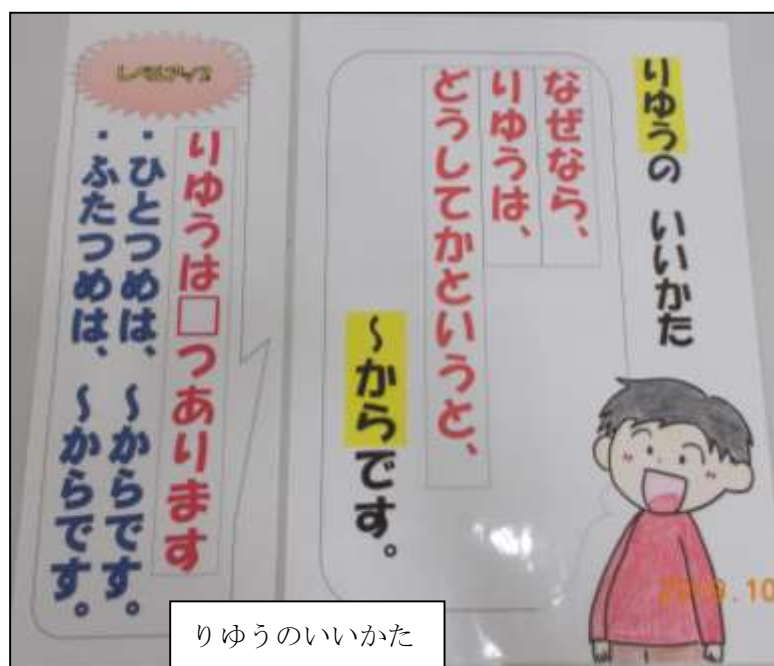 りゆうの いいかた
なぜなら、
りゆうは、
どうしてかというと、
~からです。
レベルアップ
りゆうは□つあります
・ひとつめは、 ~からです。
・ふたつめは、 ~からです。
りゆうのいいかた